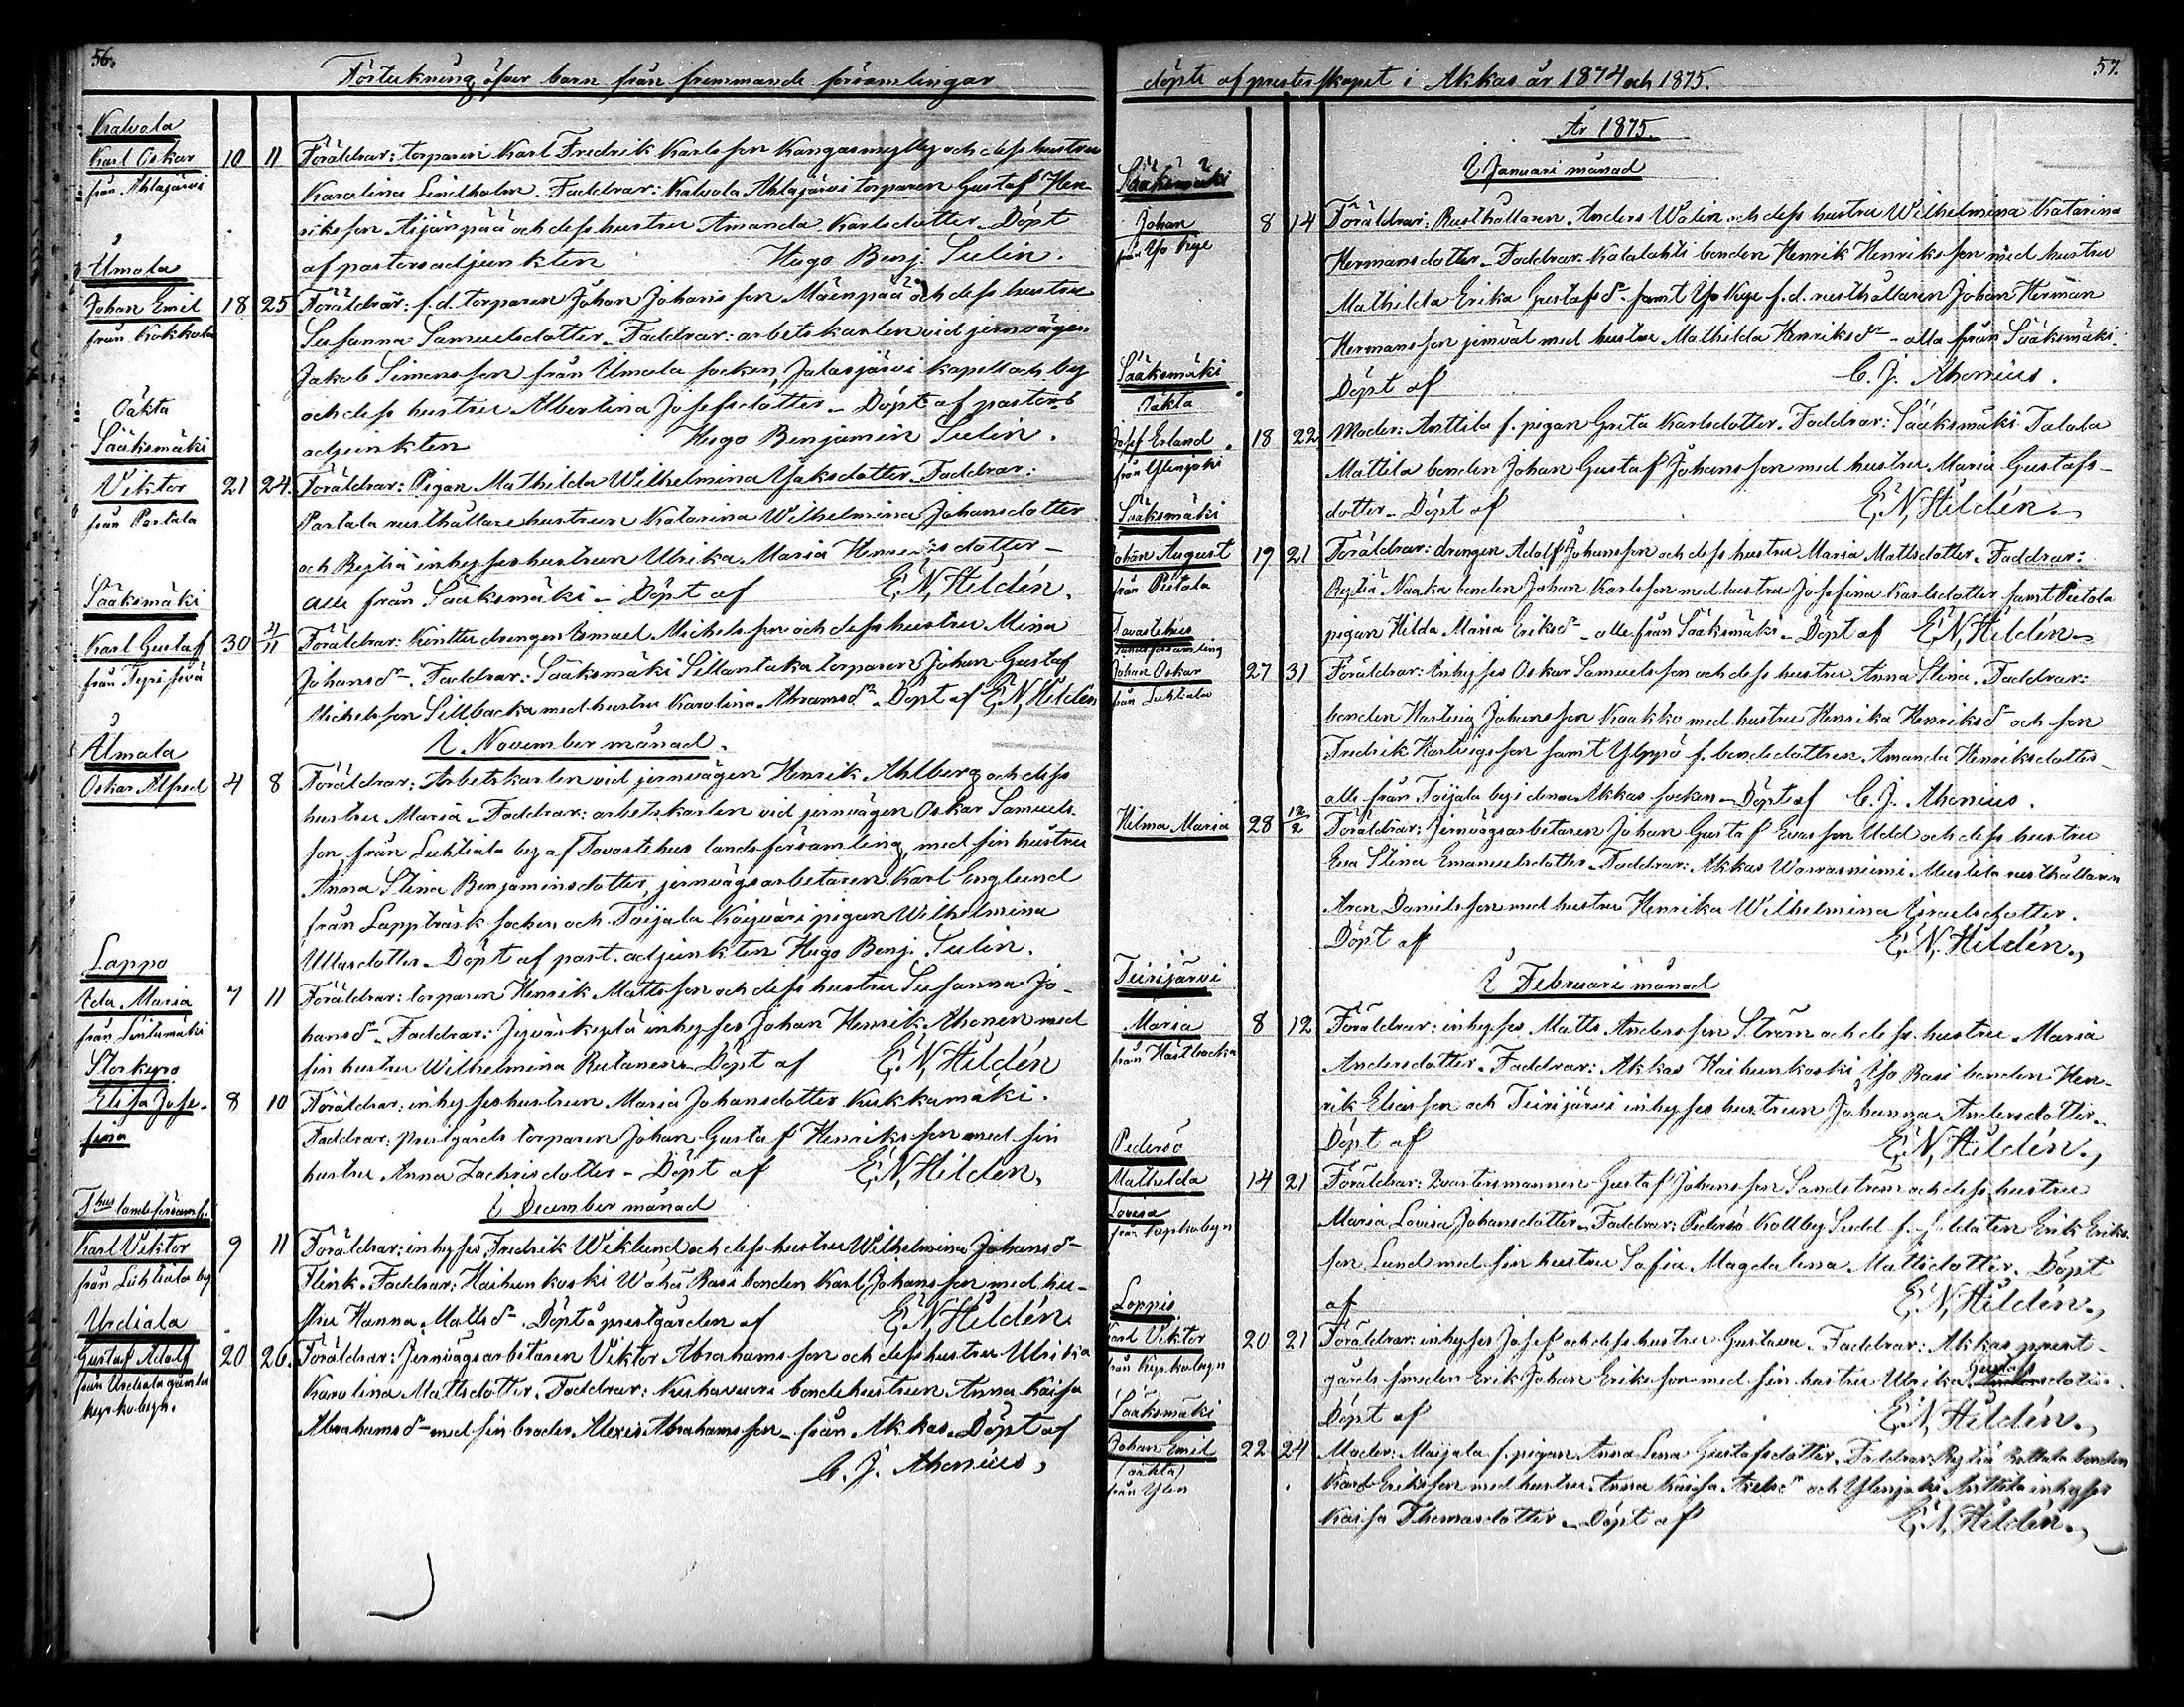 56.
Förteckning öfver barn från främmande församlingar
Kalvola
Karl Oskar 10 11 Föräldrar: torparen Karl Fredrik Karlsson Kangasmylly och dess hustru
från Ahlajärvi
Karolina Lindholm. Faddrar: Kalvola Ahlajärvi torparen Gustaf Hen-
riksson Äijänpää och dess hustru Amanda Karlsdotter. Döpt
af pastorsadjunkten Hugo Benj. Sulin.
Ilmola
Johan Emil 18 25 Föräldrar: f.d. torparen Johan Johansson Mäenpää och dess hustru
från Kokkola
Susanna Samuelsdotter. Faddrar: arbetskarlen vid jernvägen
Jakob Simonsson från Ilmola socken, Jalasjärvi kapell och by
och dess hustru Albertina Josefsdotter. Döpt af pastors
adjunkten Hugo Benjamin Sulin.
Oäkta
Sääksmäki
Viktor 21 24. Föräldrar: Pigan Mathilda Wilhelmina Isaksdotter. Faddrar:
från Partala
Partala rusthållarehustrun Katarina Wilhelmina Johansdotter
och Ryttiä inhyseshustrun Ulrika Maria Henriksdotter –
alla från Sääksmäki – Döpt af E. N. Hildén.
Sääksmäki
Karl Gustaf 30 4/11 Föräldrar: drengen Ismael Michelsson och dess hustru Mina
Johansdr. Faddrar: Sääksmäki Sillantaka torparen Johan Gustaf
Michelsson Sillbacka med hustru Karolina Abramsdr. Döpt af E. N. Hildén
I November månad.
Ilmola
Oskar Alfred 4 8 Föräldrar: Arbetskarlen vid jernvägen Henrik Ahlberg och dess
hustru Maria. Faddrar: arbetskarlen vid jernvägen Oskar Samuels-
son från Luhtiala by af Tavastehus landsförsamling, med sin hustru
Anna Stina Benjaminsdotter, jernvägsarbetaren Karl Englund
från Lappträsk socken och Toijala pigan Wilhelmina
Döpt af past. adjunkten Hugo Benj. Sulin.
Lappo
Ida Maria 7 11 Föräldrar: torparen Henrik Mattsson och dess hustru Susanna Jo-
från Lintumäki
hansdr. Faddrar: inhyses Johan Henrik Ahonen med
sin hustru Wilhelmina Rutanen. Döpt af E. N. Hildén
Storkyro
Elisa Jose- 8 10 Föräldrar: inhyseshustrun Maria Johansdotter Kukkamäki.
fina
Faddrar: prestgårds torparen Johan Gustaf Henriksson med sin
hustru Anna Zachrisdotter – Döpt af E. N. Hildén.
I December månad
Thus landsförsaml.
Karl Viktor 9 11 Föräldrar: inhyses Fredrik Wiklund och dess hustru Wilhelmina Johansdr
från Luhtiala by
Flink. Faddrar: Haihunkoski Wähä Rasi bonden Karl Johansson med hu-
stru Hanna Mattsdr. Döpt å prestgården af E. N. Hildén.
Urdiala
Gustaf Adolf 20 26. Föräldrar: Jernvägsarbetaren Viktor Abrahamsson och dess hustru Ulrika
från Urdiala gamla
kyrkobyn.
Karolina Mattsdotter. Faddrar: bondehustrun Anna Kaisa
Abrahamsdr med sin broder Alexis Abrahamsson från Akkas. Döpt af
C. J. Ahonius,
57.
döpte af presterskapet i Akkas år 1874 och 1875.
År 1875.
I Januari månad
Sääksmäki
Johan 8 14 Föräldrar: Rusthållaren Anders Walin och dess hustru Wilhelmina Katarina
Hermansdotter. Faddrar: Kalalahti bonden Henrik Henriksson med hustru
Mathilda Erika Gustafsdr samt f.d. rusthållaren Johan Herman
Hermansson jemväl med hustru Mathilda Henriksdr – alla från Sääksmäki.
Döpt af C. J. Ahonius.
Sääksmäki
Oäkta
Josef Erland 18 22 Moder: Anttila f. pigan Greta Karlsdotter. Faddrar: Sääksmäki Talala
från Ylenjoki
Mattila bonden Johan Gustaf Johansson med hustru Maria Gustafs-
dotter. Döpt af E. N. Hildén.
Sääksmäki
Johan August 19 21 Föräldrar: drengen Adolf Johansson och dess hustru Maria Mattsdotter. Faddrar:
från Pietola
Ryttiä Naaka bonden Johan Karlsson med hustru Josefina Karlsdotter samt Pietola
pigan Hilda Maria Eriksdr – alla från Sääksmäki. Döpt af E. N. Hildén.
Tavastehus
landsförsamling
Johan Oskar 27 31 Föräldrar: Inhyses Oskar Samuelsson och dess hustru Anna Stina. Faddrar:
från Luhtiala
bonden Hartvig Johansson Kaakko med hustru Henrika Henriksdr och son
Fredrik Hartvigsson samt Ylppö f. bondedottren Amanda Henriksdotter
alla från Toijala by i denna Akkas socken. Döpt af C. J. Ahonius.
Hilma Maria 28 12/2 Föräldrar: Jernvägsarbetaren Johan Gustaf Evasson Udd och dess hustru
Eva Stina Emanuelsdotter. Faddrar: Akkas Warrasniemi Mustila rusthållaren
Aron Danielsson med hustru Henrika Wilhelmina Israelsdotter.
Döpt af E. N. Hildén.
I Februari månad
Teirijärvi
Maria 8 12 Föräldrar: inhyses Matts Andersson Ström och dess hustru Maria
från Hästbacka
Andersdotter. Faddrar: Akkas Haihunkoski Iso Rasi bonden Hen-
rik Eliasson och Teirijärvi inhyses hustrun Johanna Andersdotter.
Döpt af E. N. Hildén.
Pedersö
Mathilda 14 21 Föräldrar: Qvartersmannen Gustaf Johansson Sandström och dess hustru
Lovisa
från kyrkobyn
Maria Lovisa Johansdotter. Faddrar: Pedersö Kållby Sudd f. soldaten Erik Eriks-
son Lund med sin hustru Sofia Magdalena Mattsdotter. Döpt
af E. N. Hildén.
Loppis
Karl Viktor 20 21 Föräldrar: inhyses Josef och dess hustru Gustava. Faddrar: Akkas prest-
från kyrkobyn
gårds smeden Erik Johan Eriksson med sin hustru Ulrika Gustafsdotter.
Döpt af E. N. Hildén.
Sääksmäki
Johan Emil 22 24 Moder: Maijala f. pigan Anna Lena Gustafsdotter. Faddrar: Ryttiä bonden
(oäkta)
från Ylen
Karl Eriksson med hustru Anna Kaisa Axelsdr och Ylenjoki Anttila inhyses
Kaisa Thomasdotter. Döpt af E. N. Hildén.